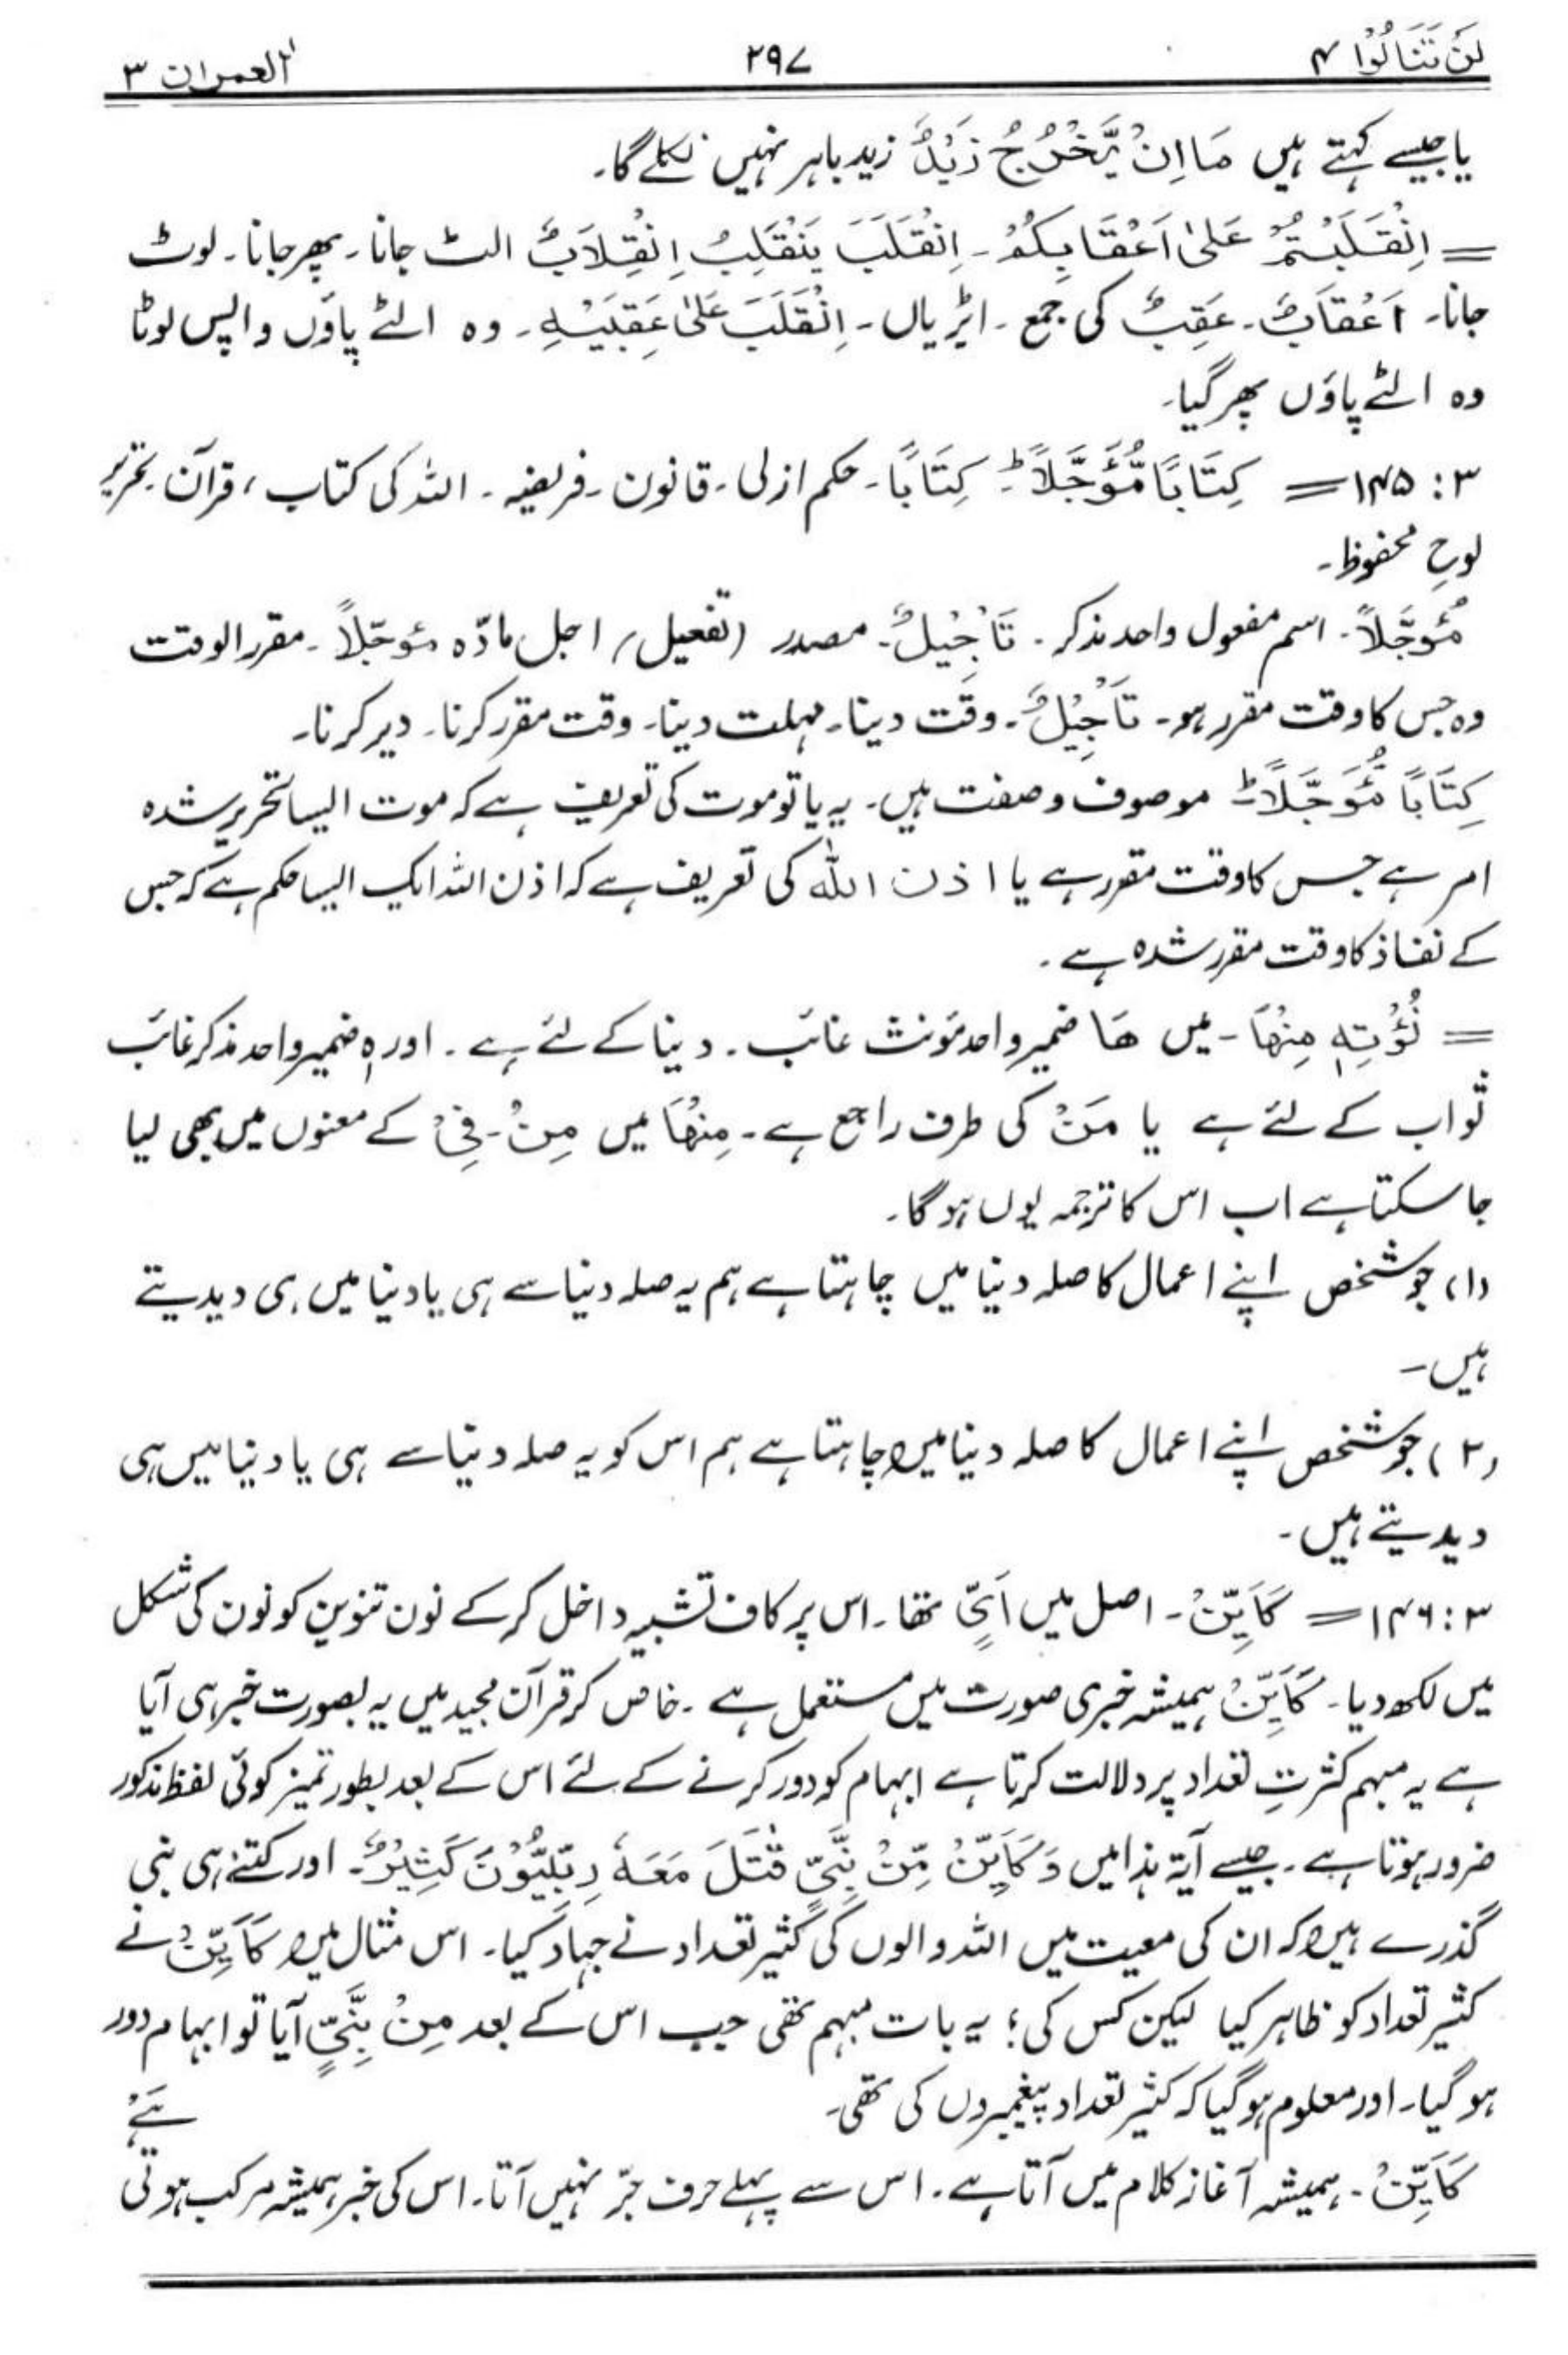 لَنْ تَنَالُوْا ۴ ۲۹۷ اٰلعمران ۳
یا جیسے کہتے ہیں مَا اِنْ یَّخْرُجُ زَیْدٌ زید باہر نہیں نکلے گا۔
= اِنْقَلَبْتُمْ عَلٰی اَعْقَابِکُمْ۔ اِنْقَلَبَ یَنْقَلِبُ اِنْقِلَابٌ الٹ جانا۔ پھر جانا۔ لوٹ
جانا۔ اَعْقَابٌ۔ عَقِبٌ کی جمع۔ ایڑیاں۔ اِنْقَلَبَ عَلٰی عَقِبَیْہِ۔ وہ الٹے پاؤں واپس لوٹا
وہ الٹے پاؤں پھر گیا۔
۳: ۱۴۵ = کِتَابًا مُّؤَجَّلًا ؕ۔ کِتَابًا۔ حکم ازلی۔ قانون۔ فریضہ۔ اللہ کی کتاب، قرآن۔ تحریر
لوحِ محفوظ۔
مُؤَجَّلًا۔ اسم مفعول واحد مذکر۔ تَاْجِیْلٌ۔ مصدر (تفعیل) اجل مادّہ مُؤَجَّلًا۔ مقرر الوقت
وہ جس کا وقت مقرر ہو۔ تَاْجِیْلٌ۔ وقت دینا۔ مہلت دینا۔ وقت مقرر کرنا۔ دیر کرنا۔
کِتَابًا مُّؤَجَّلًا ؕ موصوف وصفت ہیں۔ یہ یا تو موت کی تعریف ہے کہ موت ایسا تحریر شدہ
امر ہے جس کا وقت مقرر ہے یا اذن اللّٰہ کی تعریف ہے کہ اذن اللہ ایک ایسا حکم ہے کہ جس
کے نفاذ کا وقت مقرر شدہ ہے۔
= نُؤْتِہٖ مِنْھَا۔ میں ھَا ضمیر واحد مؤنث غائب۔ دینا کے لئے ہے۔ اور ہٖ ضمیر واحد مذکر غائب
ثواب کے لئے ہے یا مَنْ کی طرف راجع ہے۔ مِنْھَا میں مِنْ۔ فِیْ کے معنوں میں بھی لیا
جا سکتا ہے اب اس کا ترجمہ یوں ہوگا۔
(۱) جو شخص اپنے اعمال کا صلہ دنیا میں چاہتا ہے ہم یہ صلہ دنیا سے ہی یا دنیا میں ہی دیدیتے
ہیں۔
(۲) جو شخص اپنے اعمال کا صلہ دنیا میں چاہتا ہے ہم اس کو یہ صلہ دنیا سے ہی یا دنیا میں ہی
دیدیتے ہیں۔
۳: ۱۴۶ = کَاَیِّنْ۔ اصل میں اَیٍّ تھا۔ اس پر کاف تشبیہ داخل کر کے نون تنوین کو نون کی شکل
میں لکھ دیا۔ کَاَیِّنْ ہمیشہ خبری صورت میں مستعمل ہے۔ خاص کر قرآن مجید میں یہ بصورت خبر ہی آیا
ہے یہ مبہم کثرتِ تعداد پر دلالت کرتا ہے ابہام کو دور کرنے کے لئے اس کے بعد بطور تمیز کوئی لفظ مذکور
ضرور ہوتا ہے۔ جیسے آیۃ ہذا میں وَکَاَیِّنْ مِّنْ نَّبِیٍّ قٰتَلَ مَعَہٗ رِبِّیُّوْنَ کَثِیْرٌ۔ اور کتنے ہی نبی
گذرے ہیں کہ ان کی معیت میں اللہ والوں کی کثیر تعداد نے جہاد کیا۔ اس مثال میں کَاَیِّنْ نے
کثیر تعداد کو ظاہر کیا لیکن کس کی؟ یہ بات مبہم تھی جب اس کے بعد مِنْ نَّبِیٍّ آیا تو ابہام دور
ہو گیا۔ اور معلوم ہو گیا کہ کثیر تعداد پیغمبروں کی تھی۔
کَاَیِّنْ۔ ہمیشہ آغاز کلام میں آتا ہے۔ اس سے پہلے حرف جرّ نہیں آتا۔ اس کی خبر ہمیشہ مرکب ہوتی
ہے